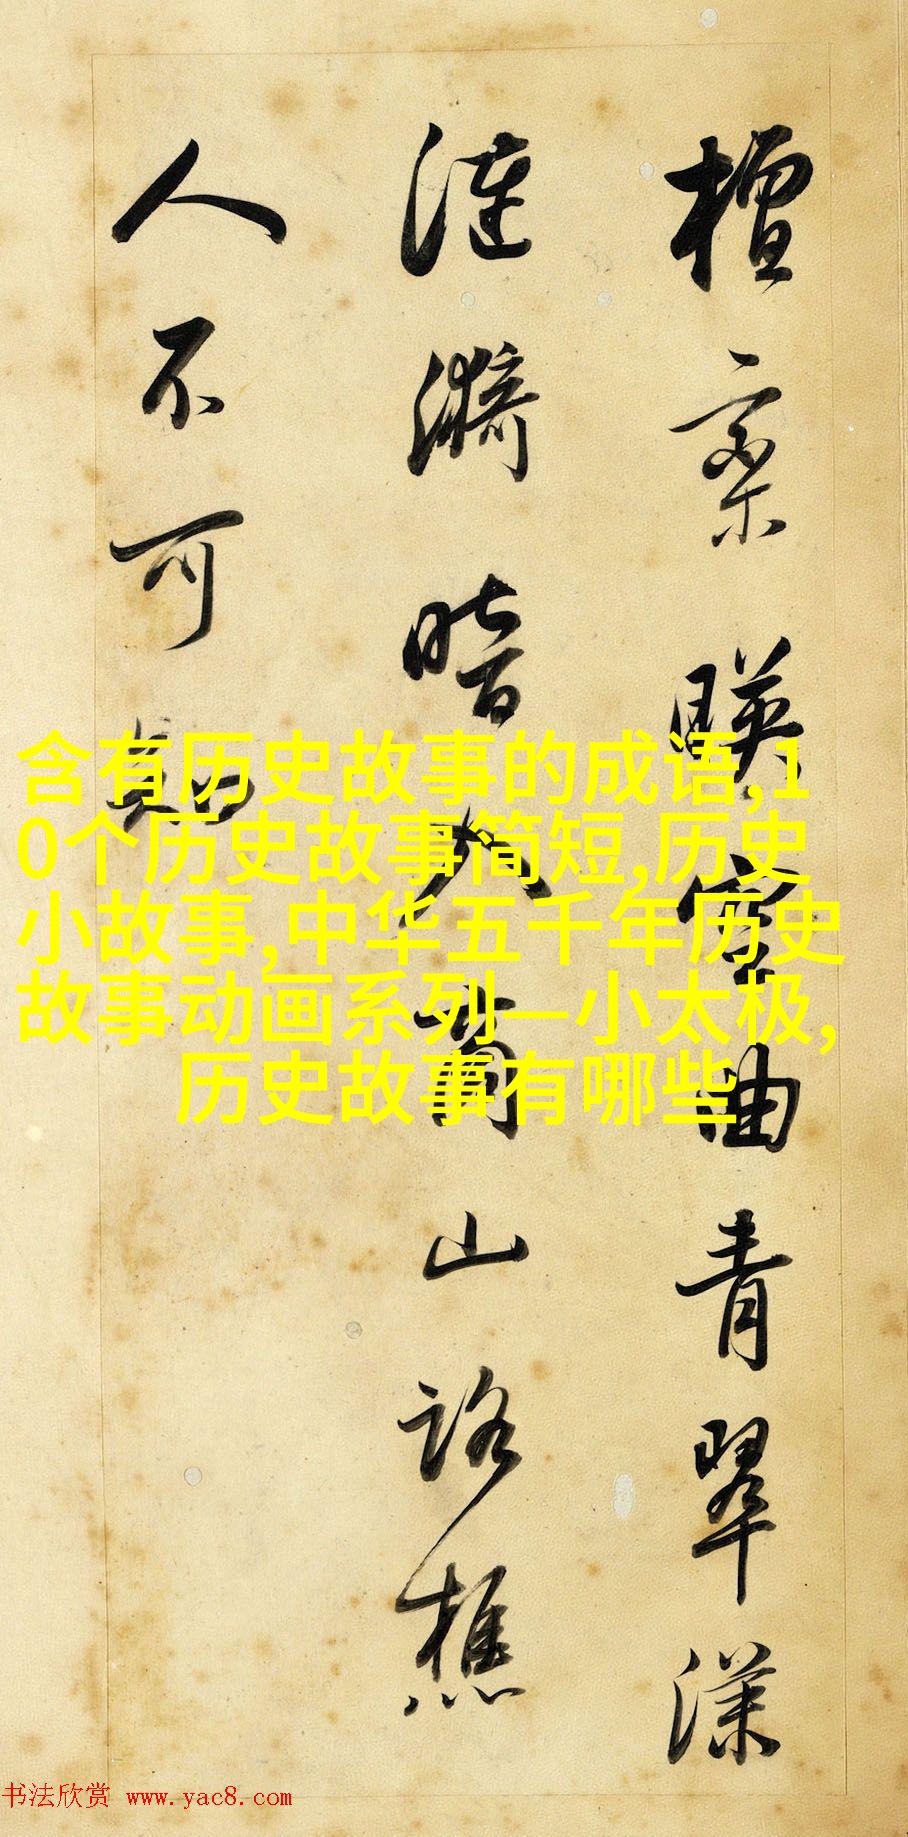 檀栾暎空曲青翠漾
漣漪暗入商山路樵
人不可知
含有历史故事的成语,1
0个历史故事简短,历史
小故事,中华五千年历史
故事动画系列—小太极,
历史故事有哪些
书法欣赏 www.yac8.com